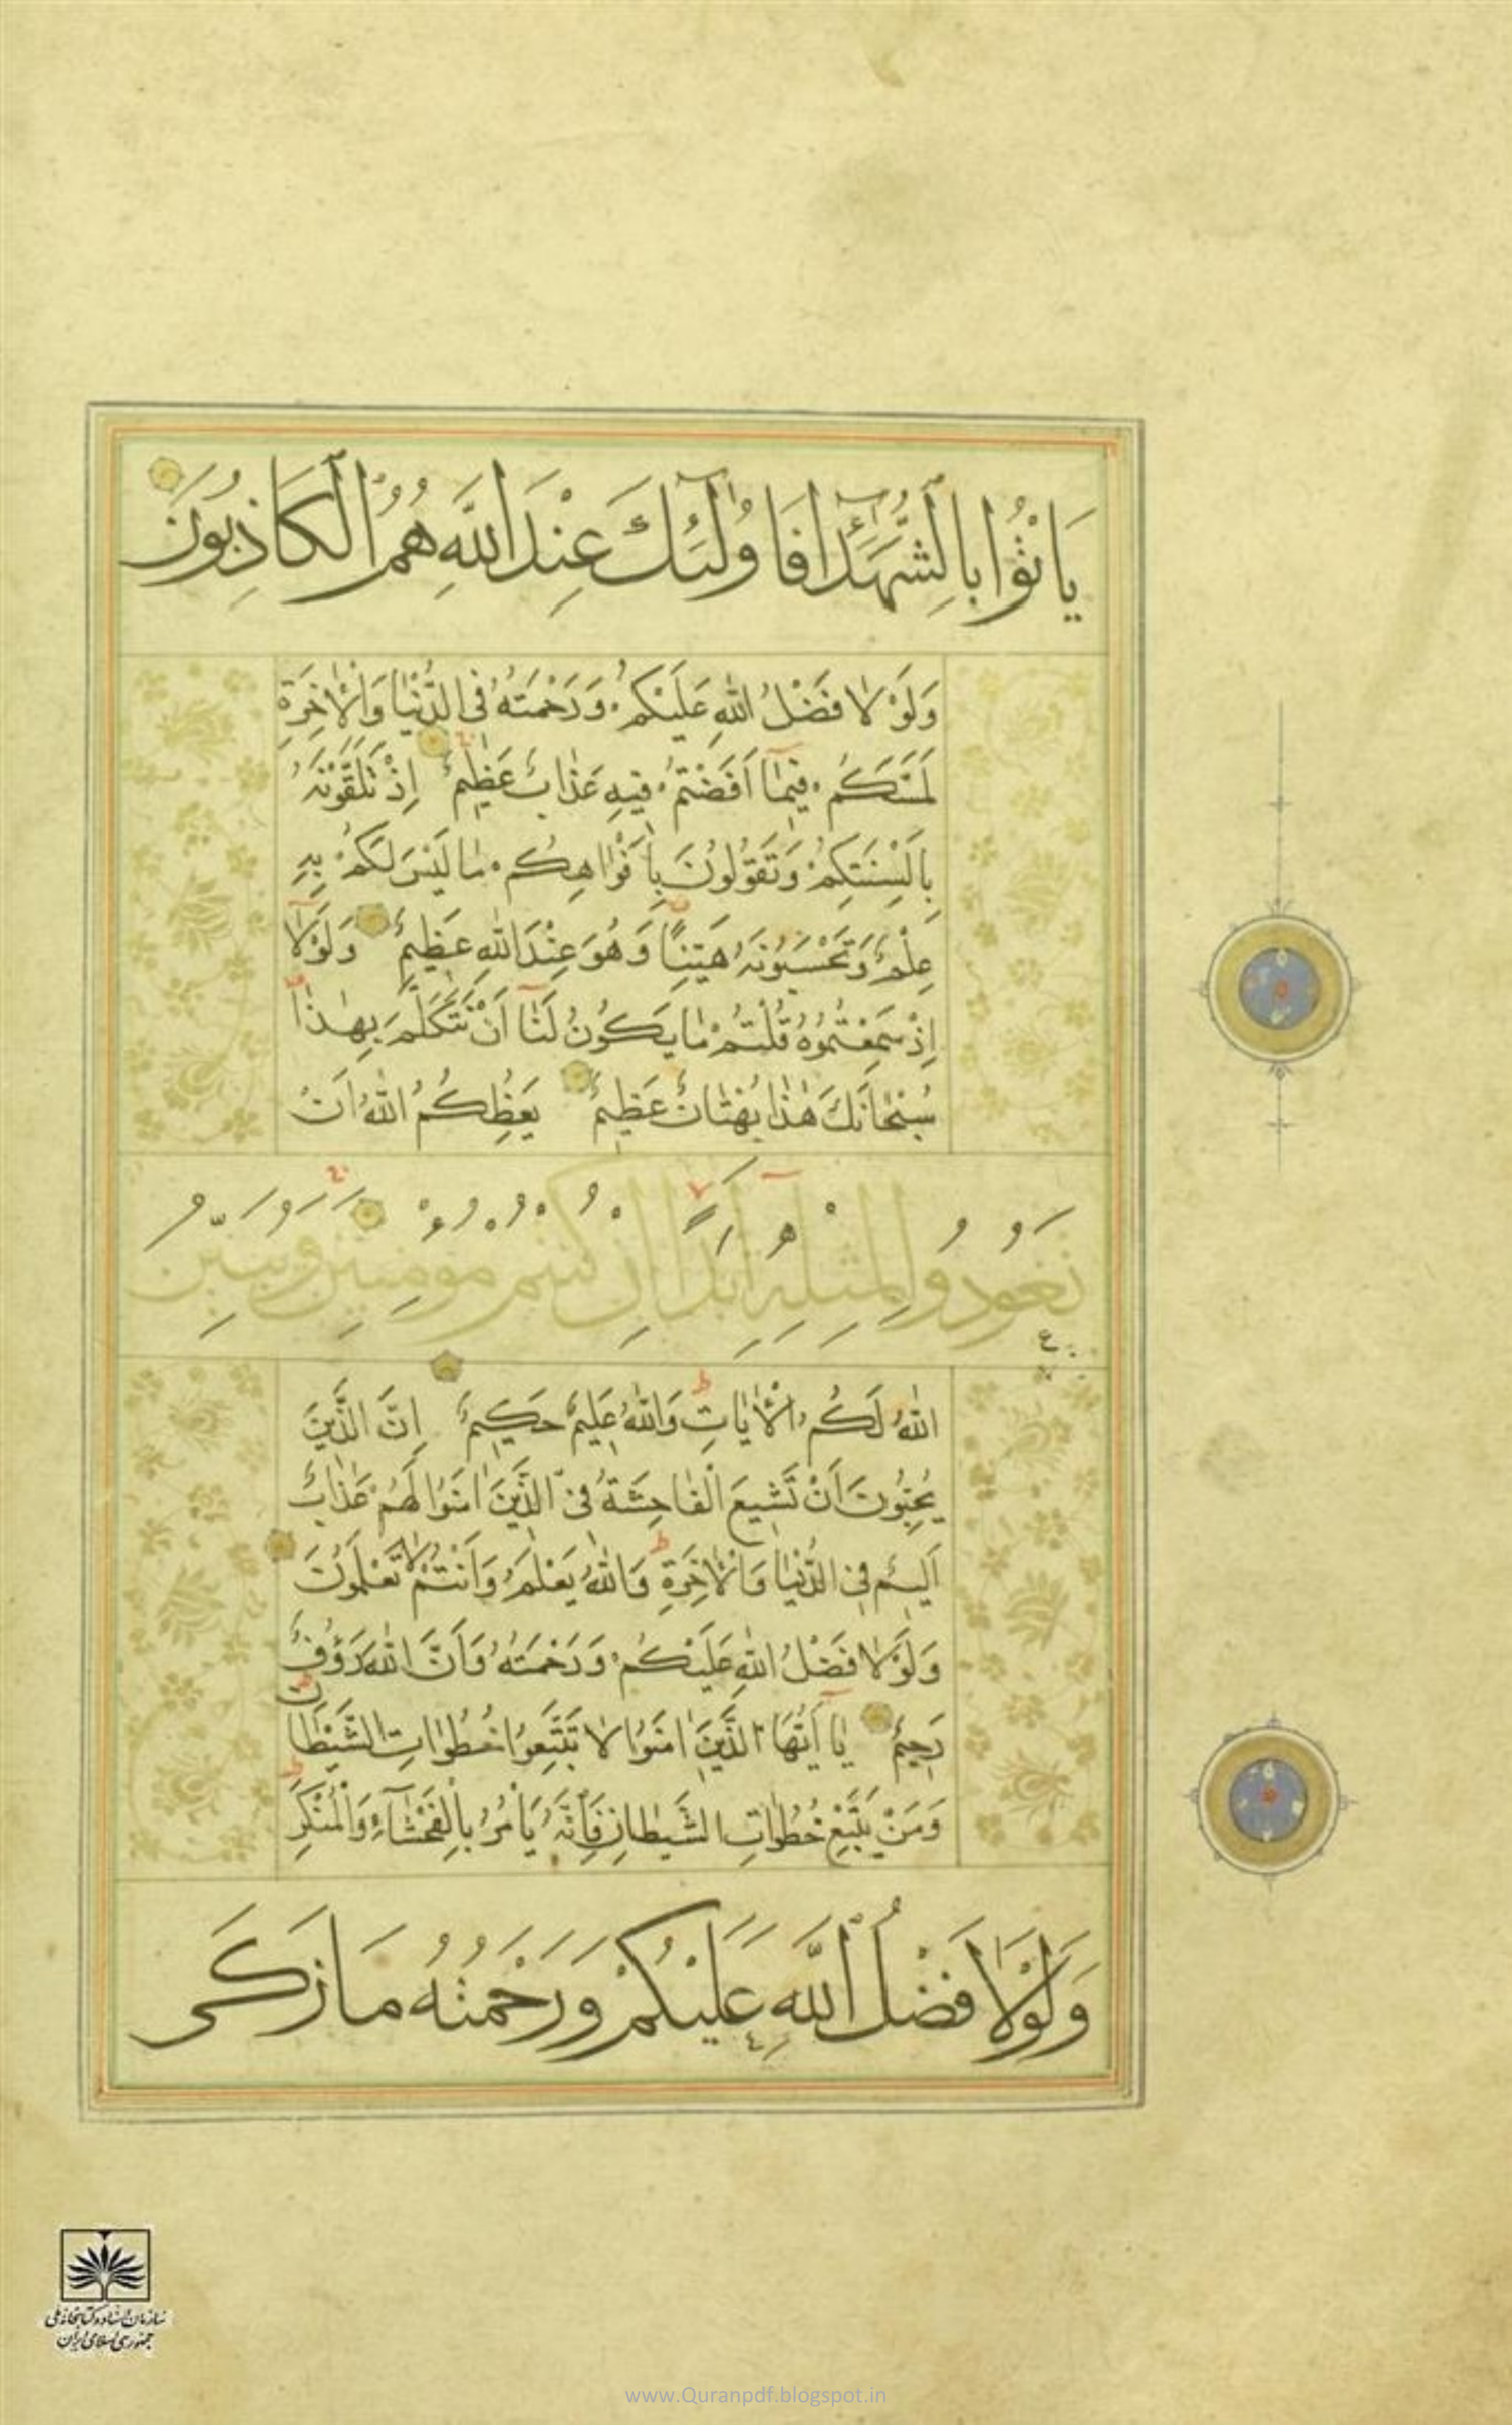 يَاتُوْا بِالشُّهَدَآءِ فَاُولٰٓئِكَ عِنْدَ اللَّهِ هُمُ الْكَاذِبُوْنَ
وَلَوْلَا فَضْلُ اللهِ عَلَيْكُمْ وَرَحْمَتُهُ فِي الدُّنْيَا وَالْاٰخِرَةِ
لَمَسَّكُمْ فِيْمَا اَفَضْتُمْ فِيهِ عَذَابٌ عَظِيْمٌ اِذْ تَلَقَّوْنَهُ
بِاَلْسِنَتِكُمْ وَتَقُوْلُونَ بِاَفْوَاهِكُمْ مَا لَيْسَ لَكُمْ بِهِ
عِلْمٌ وَتَحْسَبُوْنَهُ هَيِّنًا وَهُوَ عِنْدَ اللهِ عَظِيْمٌ وَلَوْلَا
اِذْ سَمِعْتُمُوْهُ قُلْتُمْ مَا يَكُوْنُ لَنَا اَنْ نَتَكَلَّمَ بِهٰذَا
سُبْحَانَكَ هٰذَا بُهْتَانٌ عَظِيْمٌ يَعِظُكُمُ اللهُ اَنْ
تَعُوْدُوْا لِمِثْلِهِ اَبَدًا اِنْ كُنْتُمْ مُوْمِنِيْنَ وَيُبَيِّنُ
اللهُ لَكُمُ الْاٰيَاتِ وَاللهُ عَلِيْمٌ حَكِيْمٌ اِنَّ الَّذِيْنَ
يُحِبُّوْنَ اَنْ تَشِيْعَ الْفَاحِشَةُ فِي الَّذِيْنَ اٰمَنُوْا لَهُمْ عَذَابٌ
اَلِيْمٌ فِي الدُّنْيَا وَالْاٰخِرَةِ وَاللهُ يَعْلَمُ وَاَنْتُمْ لَا تَعْلَمُوْنَ
وَلَوْلَا فَضْلُ اللهِ عَلَيْكُمْ وَرَحْمَتُهُ وَاَنَّ اللهَ رَؤُفٌ
رَحِيْمٌ يَا اَيُّهَا الَّذِيْنَ اٰمَنُوْا لَا تَتَّبِعُوْا خُطُوَاتِ الشَّيْطَانِ
وَمَنْ يَتَّبِعْ خُطُوَاتِ الشَّيْطَانِ فَاِنَّهُ يَاْمُرُ بِالْفَحْشَآءِ وَالْمُنْكَرِ
وَلَوْلَا فَضْلُ اللَّهِ عَلَيْكُمْ وَرَحْمَتُهُ مَا زَكَى
سازمان اسناد و کتابخانه ملی
جمهوری اسلامی ایران
www.Quranpdf.blogspot.in